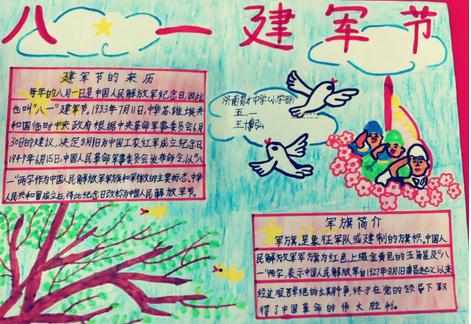 八一建军节
建军节的来历
每年的八月一日是中国人民解放军纪念日,因此
也叫"八一"建军节。1933年7月11日,中华苏维埃共
和国临时中央政府根据中央革命军事委员会6月
30日的建议,决定8月1日为中国工农红军成立纪念日
1949年6月15日,中国人民革命军事委员会发布命令,以"八
一"两字作为中国人民解放军军旗和军徽的主要标志。中华
人民共和国成立后,将此纪念日改称为中国人民解放军建军节。
五一
王
军旗简介
军旗,是象征军队或建制的旗帜,中国人
民解放军军旗为红色上缀金黄色的五角星及"八
一"两字,表示中国人民解放军自1927年8月1日南昌起义以来
经过艰苦卓绝的长期斗争,终于在党的领导下取
得了中国革命的伟大胜利。